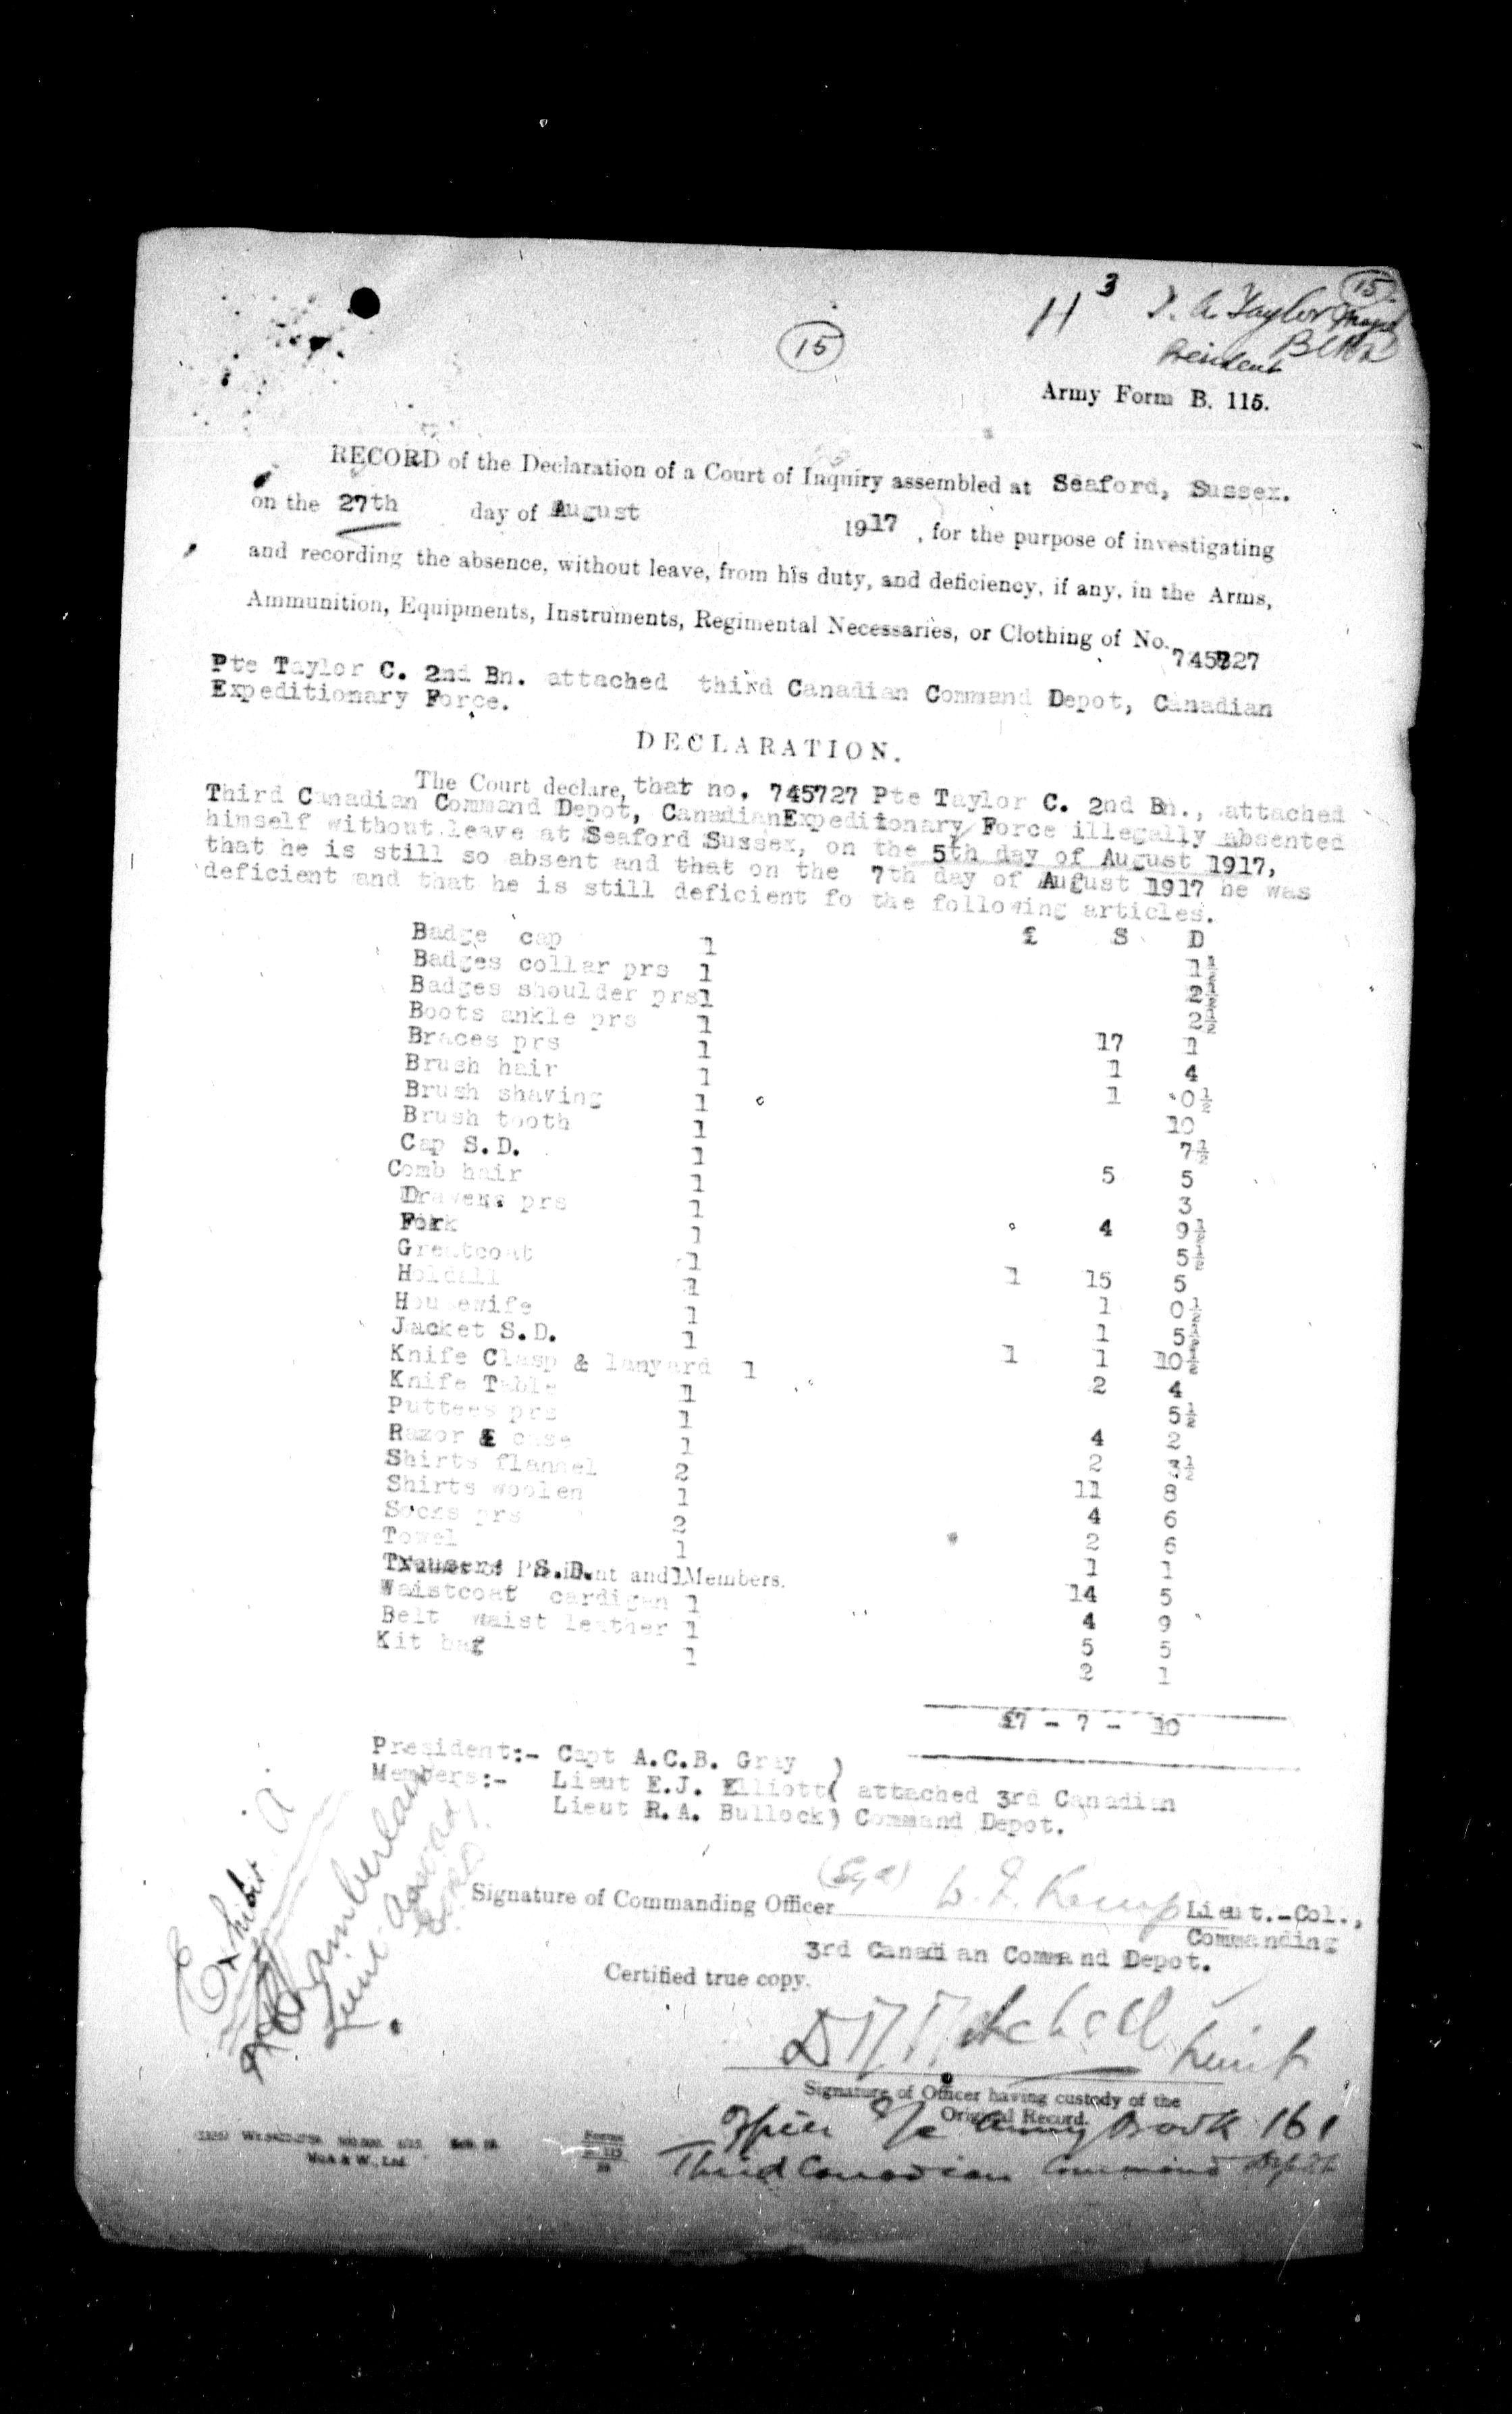 15
H 3
15
T. A. Taylor Major
President
Army Form B. 115.
RECORD of the Declaration of a Court of Inquiry assembled at Seaford, Sussex.
on the 27th day of August 1917, for the purpose of investigating
and recording the absence, without leave, from his duty, and deficiency, if any, in the Arms,
Ammunition, Equipments, Instruments, Regimental Necessaries, or Clothing of No. 745727
Pte Taylor C. 2nd Bn. attached third Canadian Command Depot, Canadian
Expeditionary Force.
DECLARATION.
The Court declare, that no. 745727 Pte Taylor C. 2nd Bn., attached
Third Canadian Command Depot, CanadianExpeditionary Force illegally absented
himself without leave at Seaford Sussex, on the 5th day of August 1917,
that he is still so absent and that on the 7th day of August 1917 he was
deficient and that he is still deficient fo the following articles.
£ S D
Badge cap 1 1½
Badges collar prs 1 2½
Badges shoulder prs1 2½
Boots ankle prs 1 17 1
Braces prs 1 1 4
Brush hair 1 1 0½
Brush shaving 1 10
Brush tooth 1 7½
Cap S.D. 1 5 5
Comb hair 1 3
Drawers prs 1 4 9½
Fork 1 5½
Greatcoat 1 1 15 5
Holdall 1 1 0½
Housewife 1 1 5½
Jacket S.D. 1 1 1 10½
Knife Clasp & lanyard 1 2 4
Knife Table 1 5½
Puttees prs 1 4 2
Razor & case 1 2 ½
Shirts flannel 2 11 8
Shirts woolen 1 4 6
Socks prs 2 2 6
Towel 1 1 1
Trousers S.D. 1 14 5
President and Members.
Waistcoat cardigan 1 4 9
Belt waist leather 1 5 5
Kit bag 1 2 1
£7 - 7 - 10
President:- Capt A.C.B. Gray )
Members:- Lieut E.J. Elliott( attached 3rd Canadian
Lieut R.A. Bullock) Command Depot.
Exhibit A
Chamberlain
Lieut
(Sgd) Kemp
Signature of Commanding Officer Lieut.-Col.,
Commanding
3rd Canadian Command Depot.
Certified true copy.
Mitchell Lieut
Signature of Officer having custody of the
Original Record.
Officer i/c Army Book 161
Third Canadian Command Depot